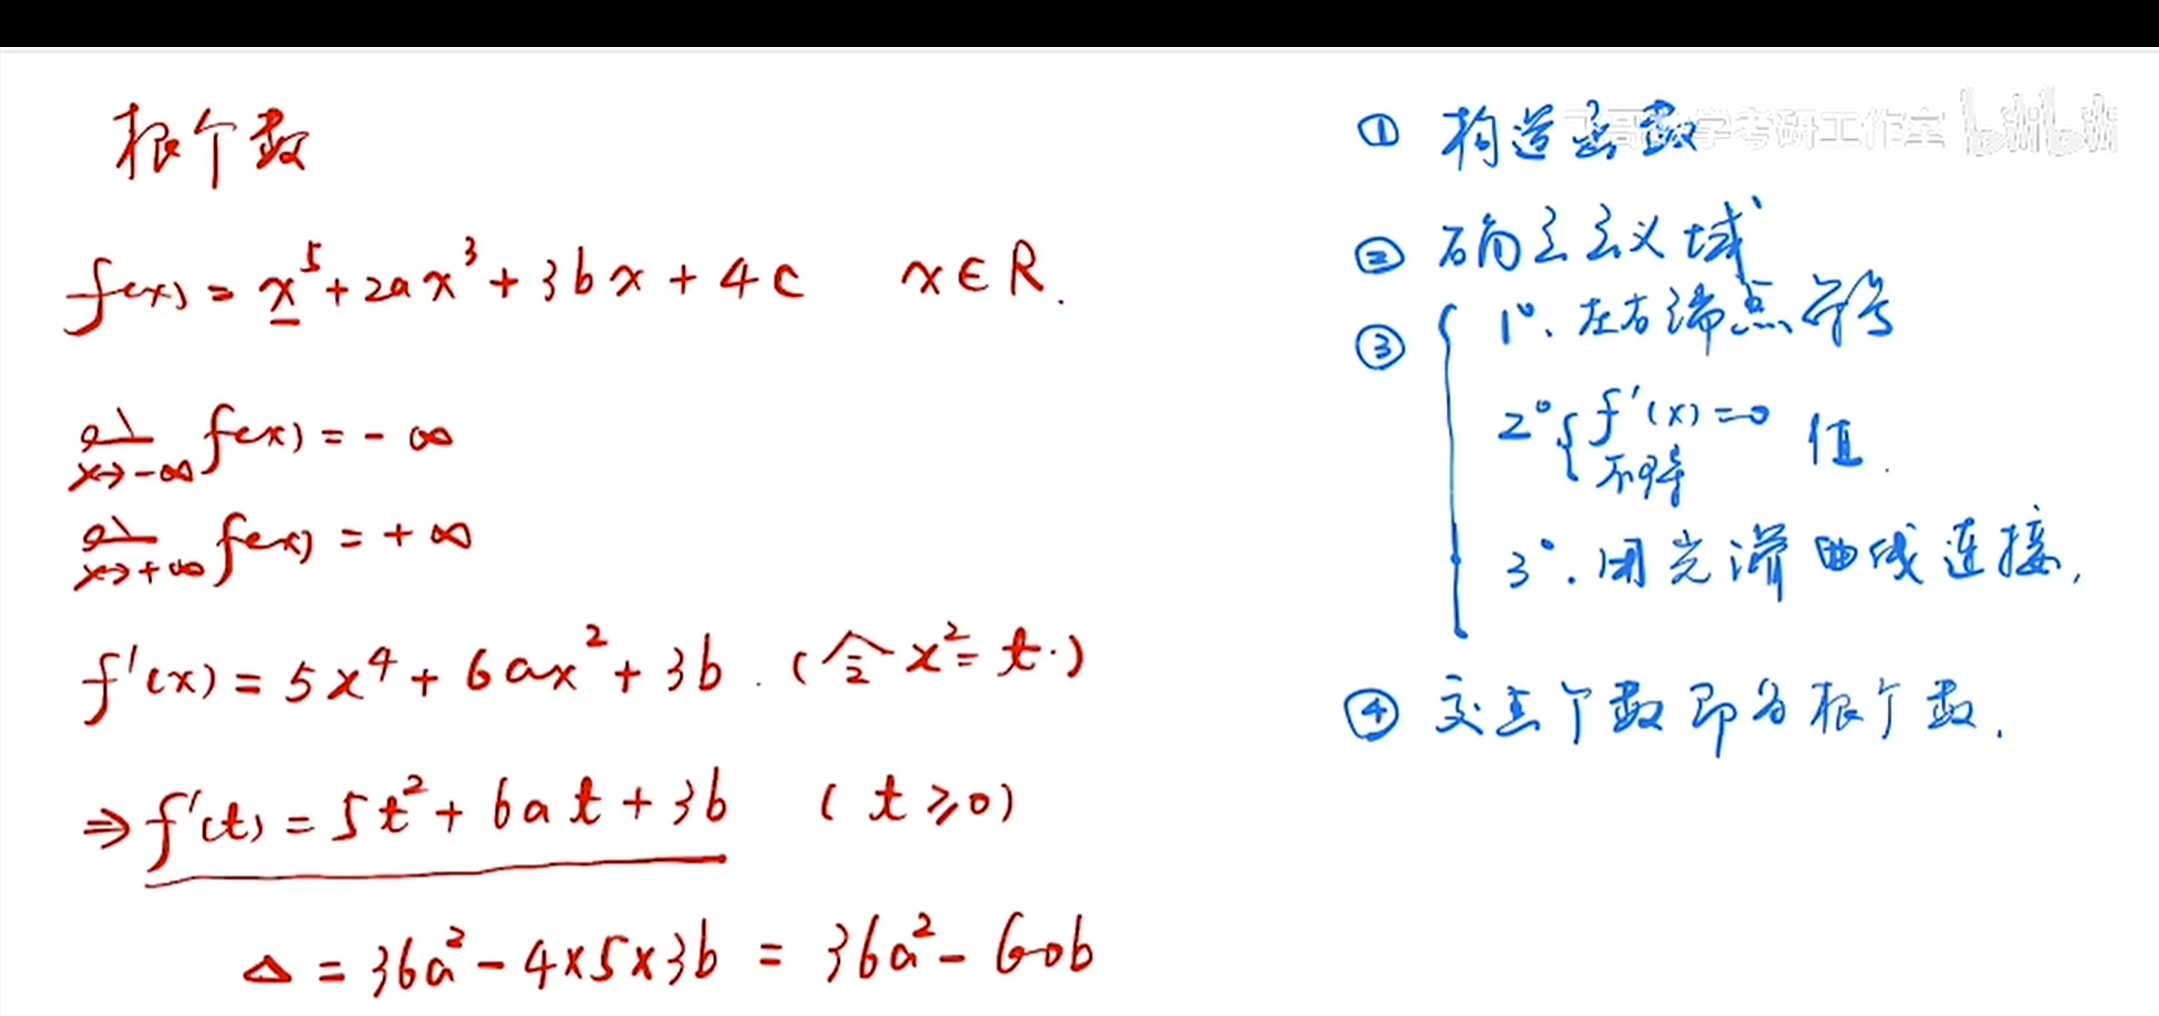 根个数
f(x) = x⁵ + 2ax³ + 3bx + 4c x∈R.
lim x→-∞ f(x) = -∞
lim x→+∞ f(x) = +∞
f'(x) = 5x⁴ + 6ax² + 3b. (令 x² = t.)
⇒ f'(t) = 5t² + 6at + 3b (t ≥ 0)
Δ = 36a² - 4×5×3b = 36a² - 60b
① 构造函数
学考研工作室 bilibili
② 确定定义域
③ { 1°. 左右端点符号
2° { f'(x)=0 不可导 值.
3°. 用光滑曲线连接,
④ 交点个数即为根个数.